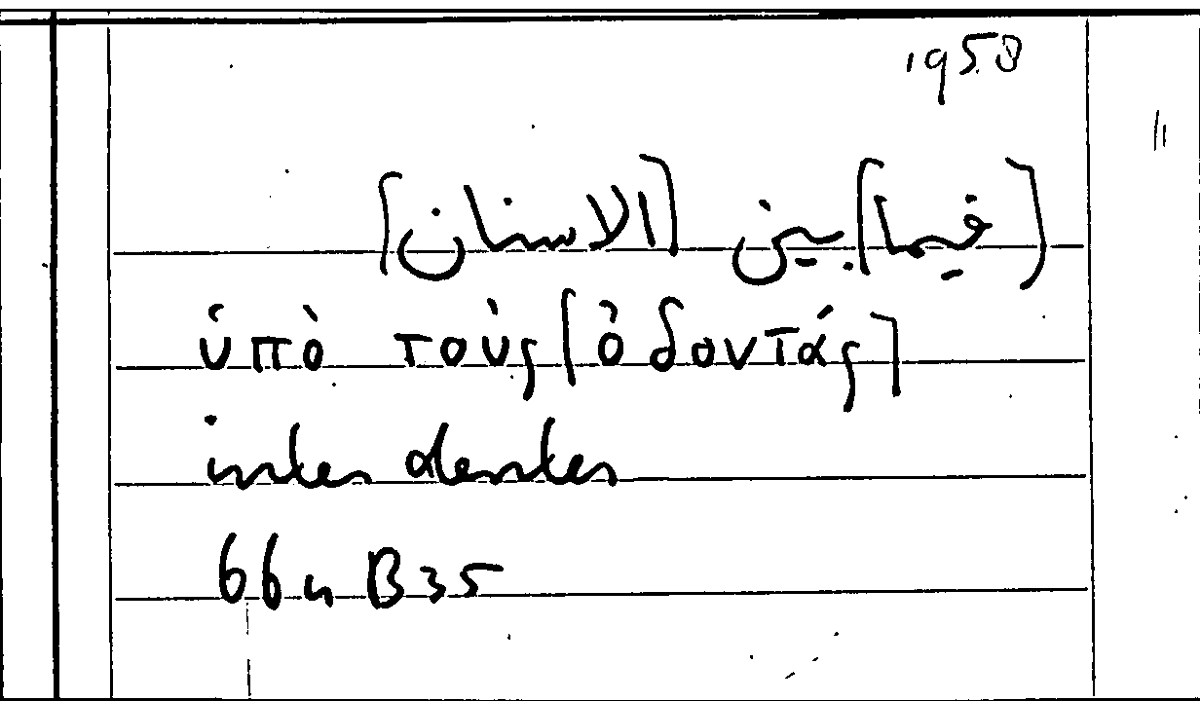 1958
[فيما] بين [الاسنان]
ὑπὸ τοὺς [ὀδοντάς]
inter dentes
66 n B35